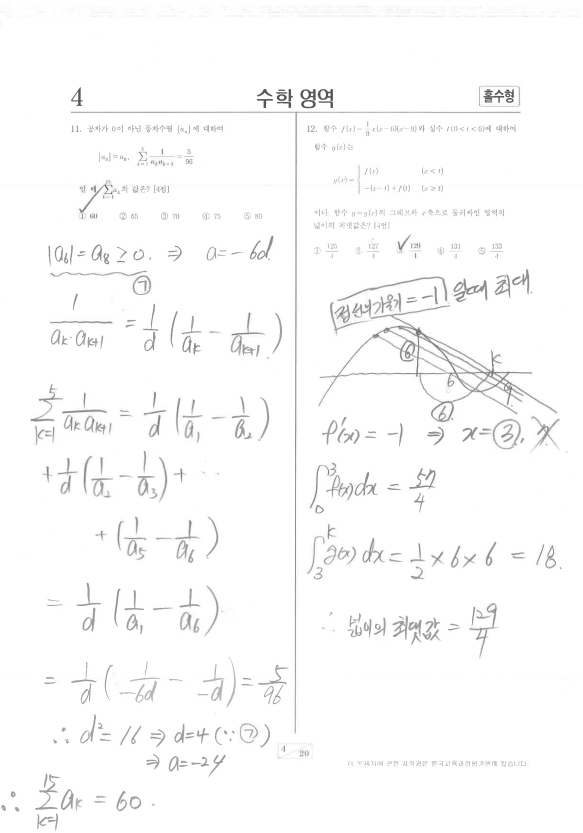 4
수학 영역
홀수형
11. 공차가 0이 아닌 등차수열 {aₙ}에 대하여
|a₆|=a₈, ∑_{k=1}^{5} 1/(aₖaₖ₊₁) = 5/96
일 때 ∑_{k=1}^{15} aₖ의 값은? [4점]
① 60 ② 65 ③ 70 ④ 75 ⑤ 80
|a₆|=a₈≥0. ⇒ a=-6d.
㉠
1/(aₖ·aₖ₊₁) = 1/d (1/aₖ - 1/aₖ₊₁)
∑_{k=1}^{5} 1/(aₖaₖ₊₁) = 1/d (1/a₁ - 1/a₂)
+ 1/d (1/a₂ - 1/a₃) + ...
+ (1/a₅ - 1/a₆)
= 1/d (1/a₁ - 1/a₆)
= 1/d (1/-6d - 1/-d) = 5/96
∴ d²=16 ⇒ d=4 (∵㉠)
⇒ a=-24
∴ ∑_{k=1}^{15} aₖ = 60.
12. 함수 f(x)=1/9 x(x-6)(x-9)와 실수 t(0<t<6)에 대하여
함수 g(x)는
g(x)= { f(x) (x<t)
-(x-t)+f(t) (x≥t)
이다. 함수 y=g(x)의 그래프와 x축으로 둘러싸인 영역의
넓이의 최댓값은? [4점]
① 125/4 ② 127/4 ③ 129/4 ④ 131/4 ⑤ 133/4
접선의 기울기 = -1 일때 최대.
⑥ 6 k 9
⑥
f'(x) = -1 ⇒ x=③, 7
∫₀³ f(x)dx = 57/4
∫₃ᵏ g(x)dx = 1/2 × 6 × 6 = 18.
∴ 넓이의 최댓값 = 129/4
4 20
이 문제지에 관한 저작권은 한국교육과정평가원에 있습니다.